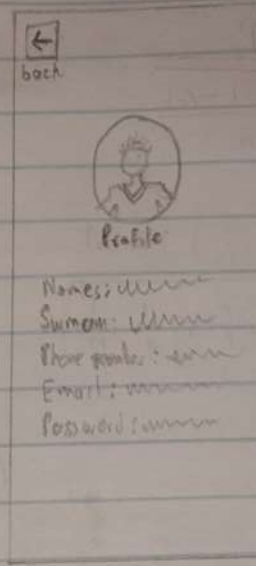 back
Profile
Names:
Surname:
Phone number:
Email:
Password: